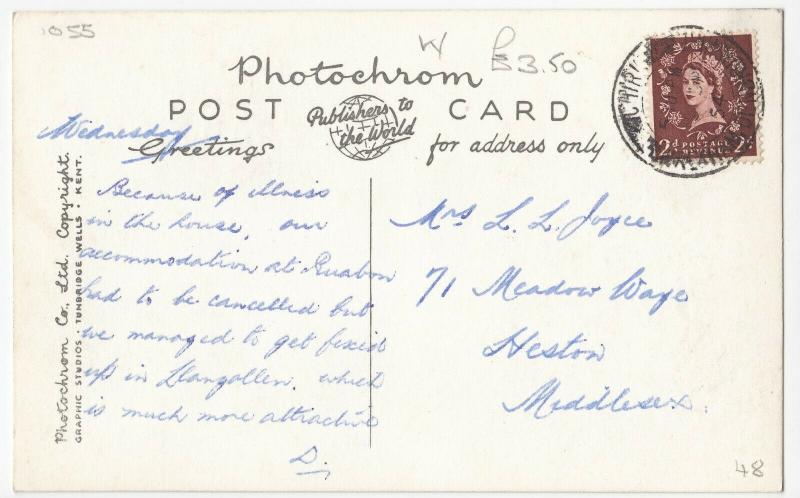 1055
W
£3.50
Photochrom
POST CARD
Publishers to
the World
Greetings
for address only
2d POSTAGE REVENUE 2d
Wednesday
Because of illness
in the house, our
accommodation at Ruabon
had to be cancelled but
we managed to get fixed
up in Llangollen, which
is much more attractive
D.
Mrs L. L. Joyce
71 Meadow Waye
Heston
Middlesex.
Photochrom Co., Ltd. Copyright.
GRAPHIC STUDIOS · TUNBRIDGE WELLS · KENT.
48